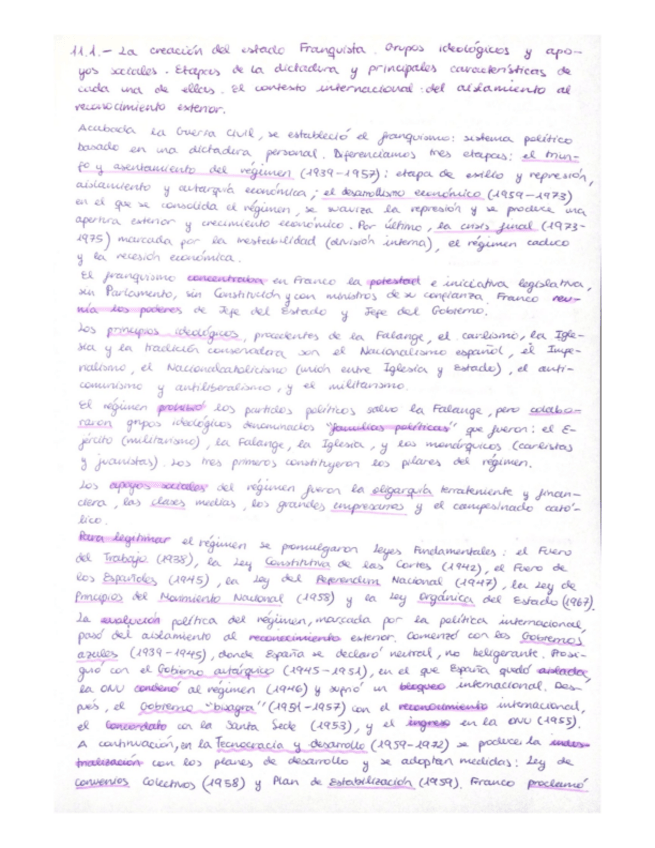 11.1.- La creación del estado Franquista. Grupos ideológicos y apo-
yos sociales. Etapas de la dictadura y principales características de
cada una de ellas. El contexto internacional: del aislamiento al
reconocimiento exterior.
Acabada la Guerra Civil, se estableció el franquismo: sistema político
basado en una dictadura personal. Diferenciamos tres etapas: el triun-
fo y asentamiento del régimen (1939-1957): etapa de exilio y represión,
aislamiento y autarquía económica; el desarrollismo económico (1959-1973)
en el que se consolida el régimen, se suaviza la represión y se produce una
apertura exterior y crecimiento económico. Por último, la crisis final (1973-
1975) marcada por la inestabilidad (división interna), el régimen caduco
y la recesión económica.
El franquismo concentraba en Franco la potestad e iniciativa legislativa,
sin Parlamento, sin Constitución y con ministros de su confianza. Franco reu-
nía los poderes de Jefe del Estado y Jefe del Gobierno.
Los principios ideológicos, procedentes de la Falange, el carlismo, la Igle-
sia y la tradición conservadora son el Nacionalismo español, el Impe-
rialismo, el Nacionalcatolicismo (unión entre Iglesia y Estado), el anti-
comunismo y antiliberalismo, y el militarismo.
El régimen prohibió los partidos políticos salvo la Falange, pero colabo-
raron grupos ideológicos denominados "familias políticas" que fueron: el E-
jército (militarismo), la Falange, la Iglesia, y los monárquicos (carlistas
y juanistas). Los tres primeros constituyeron los pilares del régimen.
Los apoyos sociales del régimen fueron la oligarquía terrateniente y finan-
ciera, las clases medias, los grandes empresarios y el campesinado cató-
lico.
Para legitimar el régimen se promulgaron Leyes Fundamentales: el Fuero
del Trabajo (1938), la Ley Constitutiva de las Cortes (1942), el Fuero de
los Españoles (1945), la Ley del Referendum Nacional (1947), la Ley de
Principios del Movimiento Nacional (1958) y la Ley Orgánica del Estado (1967).
La evolución política del régimen, marcada por la política internacional,
pasó del aislamiento al reconocimiento exterior. Comenzó con los Gobiernos
azules (1939-1945), donde España se declaró neutral, no beligerante. Prosi-
guió con el Gobierno autárquico (1945-1951), en el que España quedó aislada,
la ONU condenó al régimen (1946) y sufrió un bloqueo internacional. Des-
pués, el Gobierno "bisagra" (1951-1957) con el reconocimiento internacional,
el concordato con la Santa Sede (1953), y el ingreso en la ONU (1955).
A continuación, en la Tecnocracia y desarrollo (1959-1972) se produce la indus-
trialización con los planes de desarrollo y se adoptan medidas: Ley de
Convenios Colectivos (1958) y Plan de Estabilización (1959). Franco proclamó